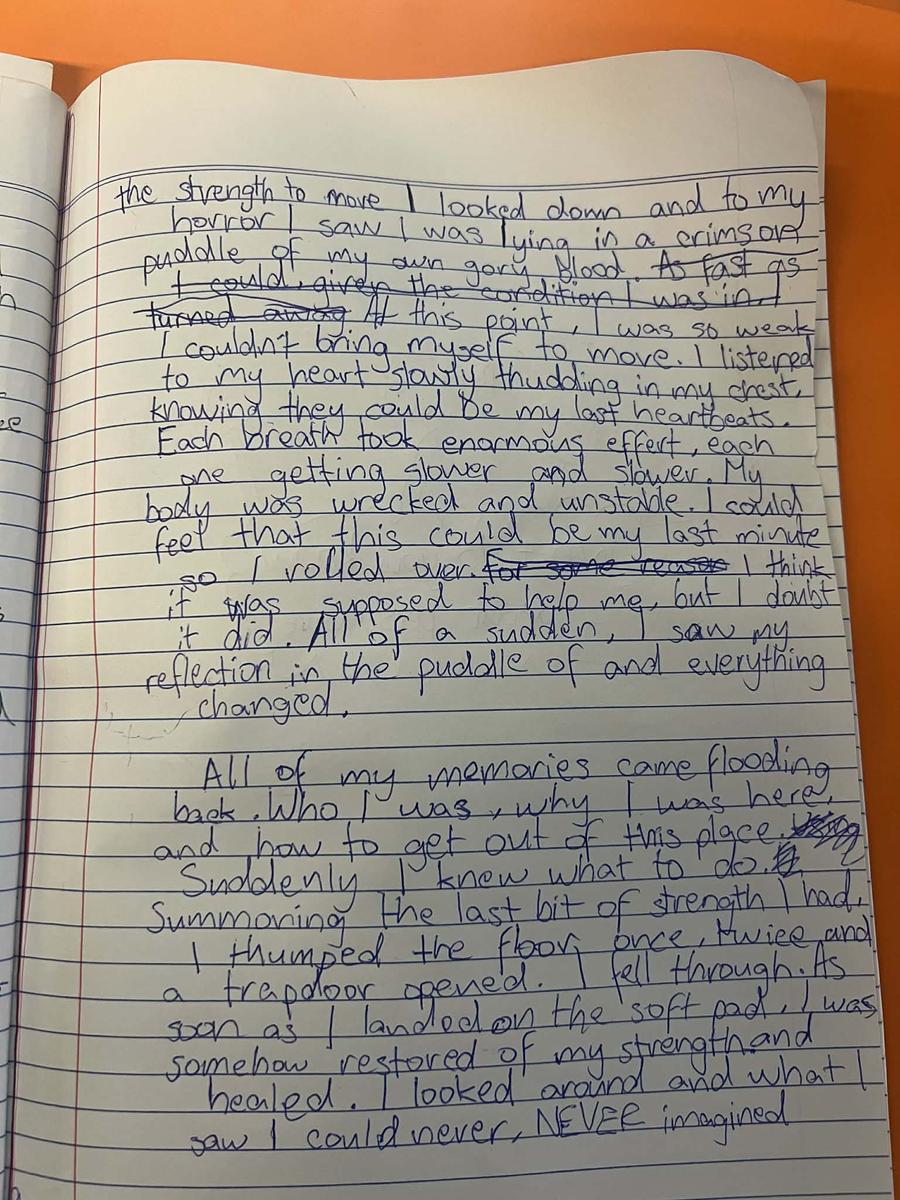 the strength to move I looked down and to my
horror I saw I was lying in a crimson
puddle of my own gory blood. As fast as
I could, given the condition I was in, I
turned away At this point, I was so weak
I couldn't bring myself to move. I listened
to my heart slowly thudding in my chest,
knowing they could be my last heartbeats.
Each breath took enormous effert, each
one getting slower and slower. My
body was wrecked and unstable. I could
feel that this could be my last minute
so I rolled over. For some reason I think
it was supposed to help me, but I doubt
it did. All of a sudden, I saw my
reflection in the puddle of and everything
changed.
All of my memories came flooding
back. Who I was, why I was here,
and how to get out of this place.
Suddenly I knew what to do.
Summoning the last bit of strength I had,
I thumped the floor, once, twice and
a trapdoor opened. I fell through. As
soon as I landed on the soft pad, I was
somehow restored of my strength and
healed. I looked around and what I
saw I could never, NEVER imagined